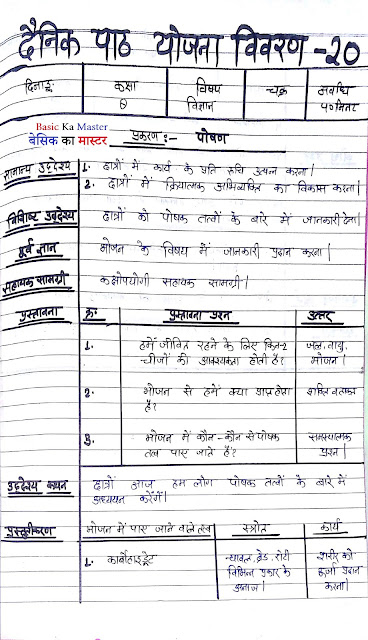 दैनिक पाठ योजना विवरण -20
दिनांक कक्षा विषय चक्र अवधि
विज्ञान ४० मिनट
Basic Ka Master
बेसिक का मास्टर
प्रकरण :- पोषण
सामान्य उद्देश्य 1. छात्रों में कार्य के प्रति रूचि उत्पन्न करना।
2. छात्रों में क्रियात्मक अभिव्यक्ति का विकास करना।
विशिष्ट उद्देश्य छात्रों को पोषक तत्वों के बारे में जानकारी देना।
पूर्व ज्ञान भोजन के विषय में जानकारी प्रदान करना।
सहायक सामग्री कक्षोपयोगी सहायक सामग्री।
प्रस्तावना क्र० प्रस्तावना प्रश्न उत्तर
1. हमें जीवित रहने के लिए किन-2 जल, वायु,
चीजों की आवश्यकता होती है? भोजन।
2. भोजन से हमें क्या प्राप्त होता
है?
3. भोजन में कौन-कौन से पोषक समस्यात्मक
तत्व पाए जाते है? प्रश्न।
उद्देश्य कथन छात्रों आज हम लोग पोषक तत्वों के बारे में
अध्ययन करेंगे।
प्रस्तुतीकरण भोजन में पाए जाने वाले तत्व स्त्रोत कार्य
1. कार्बोहाइड्रेट चावल, ब्रेड, रोटी शरीर को
विभिन्न प्रकार के ऊर्जा प्रदान
अनाज। करना।